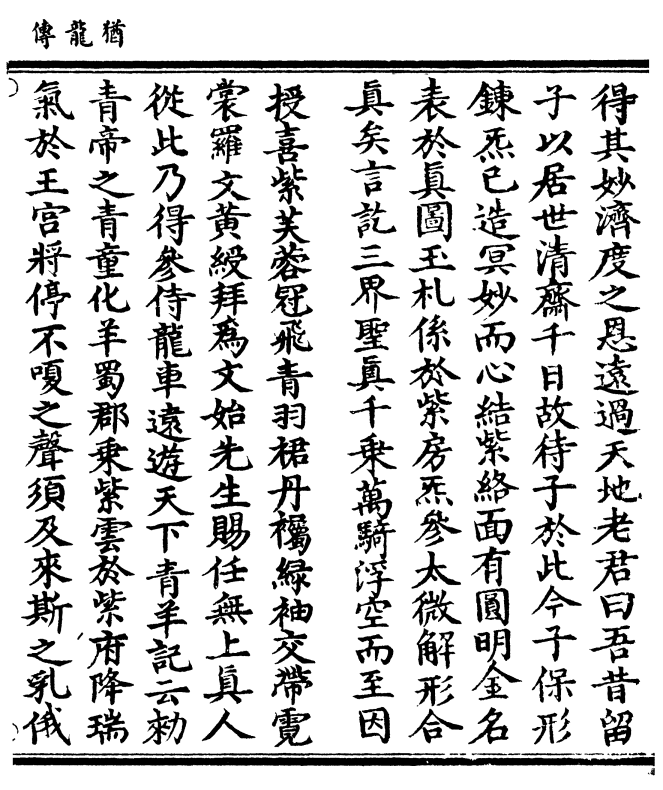 猶龍傳
得其妙濟度之恩遠過天地老君曰吾昔留
子以居世清齋千日故待子於此今子保形
鍊炁已造冥妙而心結紫絡面有圓明金名
表於眞圖玉札係於紫房炁參太微解形合
眞矣言訖三界聖眞千乘萬騎浮空而至因
授喜紫芙蓉冠飛青羽裙丹襡綠袖交帶霓
裳羅文黃綬拜爲文始先生賜任無上眞人
從此乃得參侍龍車遠遊天下青羊記云勑
青帝之青童化羊蜀郡乘紫雲於紫府降瑞
氣於王宮將停不嗄之聲須及來斯之乳俄